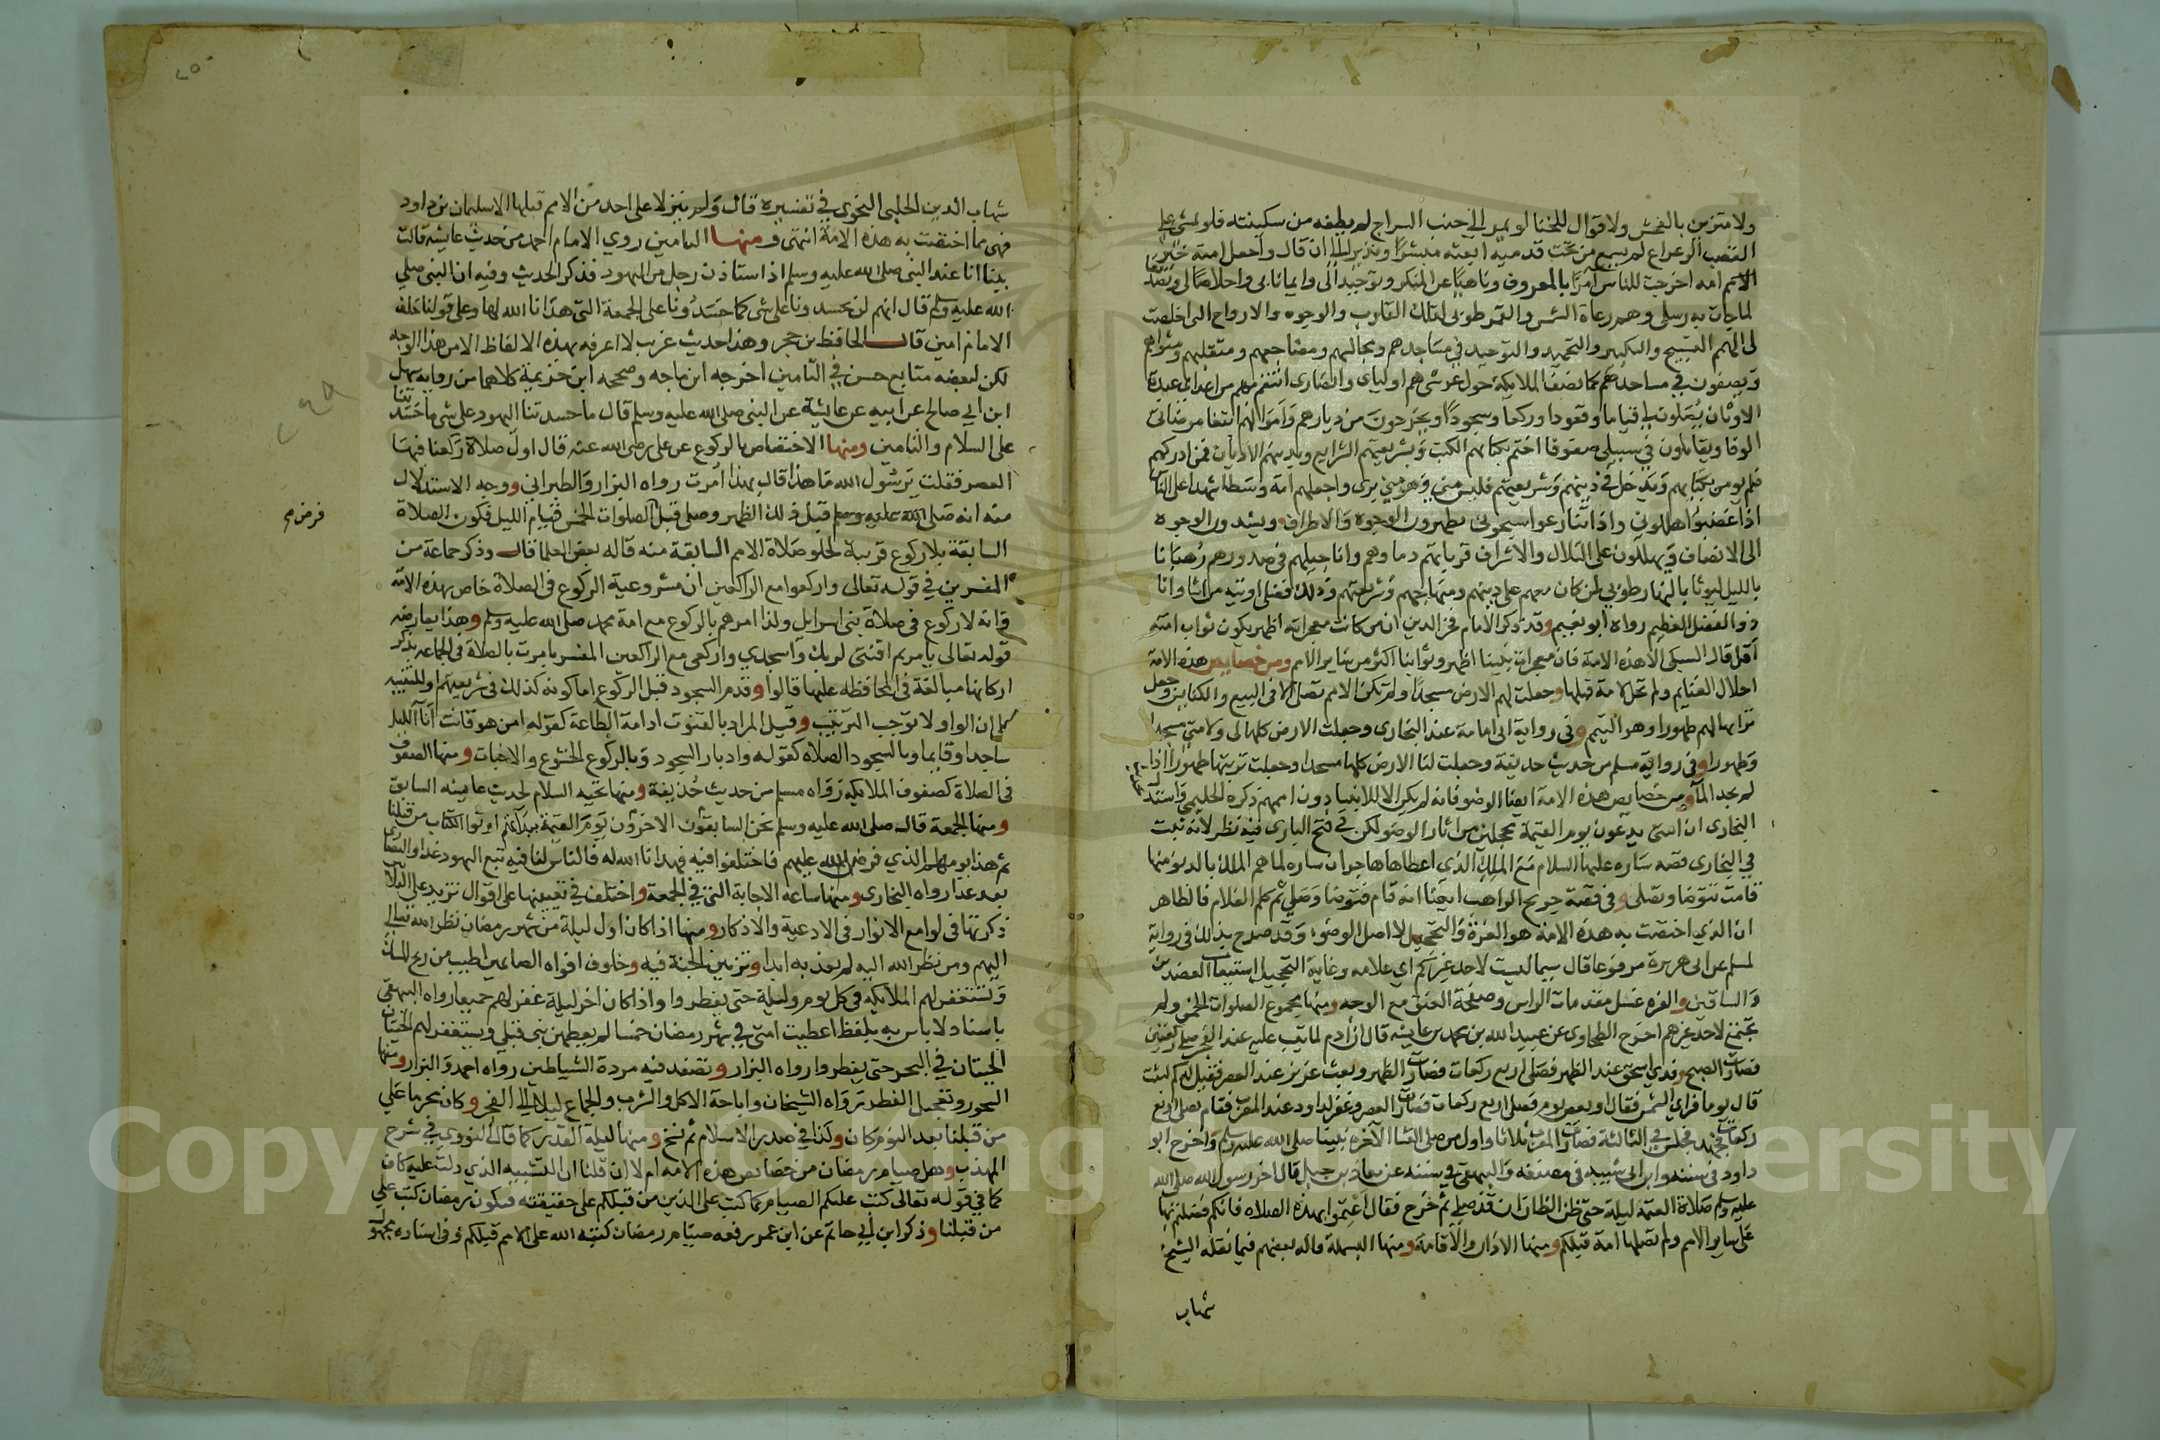 ولا متزين بالفحش ولا قوال للخنا لو يمر الي جنب السراج لم يطفه من سكينته فلو يمشي علي
القصب الرعراع لم يسمع من تحت قدميه ابعثه مبشرا ونذيرا الي ان قال واجعل امته خير
الامم امة اخرجت للناس آمرا بالمعروف وناهيا عن المنكر وتوحيدا لي وايمانا بي واخلاصا لي وتصديقا
لما جات به رسلي وهم رعاة الشمس والقمر طوبي لتلك القلوب والوجوه والارواح التي اخلصت
لي الهمهم التسبيح والتكبير والتحميد والتوحيد في مساجدهم ومجالسهم ومضاجعهم ومتقلبهم ومثواهم
ويصفون في مساجدهم كما تصف الملايكة حول عرشي هم اولياي وانصاري انتقم بهم من اعداي عبدة
الاوثان يصلون لي قياما وقعودا وركعا وسجودا ويخرجون من ديارهم واموالهم ابتغا مرضاتي
الوفا ويقاتلون في سبيلي صفوفا اختم بكتابهم الكتب وبشريعتهم الشرايع وبدينهم الاديان فمن ادركهم
فلم يومن بكتابهم ويدخل في دينهم وشريعتهم فليس مني وهو مني بري واجعلهم امة وسطا شهدا علي الناس
اذا غضبوا هللوني واذا تنازعوا سبحوني يطهرون الوجوه والاطراف ويشدون الوجوه
الي الانصاف ويهللون علي التلال والاشراف قربانهم دماوهم واناجيلهم في صدورهم رهبانا
بالليل ليوثا بالنهار طوبي لمن كان معهم علي دينهم ومنهاجهم وشريعتهم وذلك فضلي اوتيه من اشا وانا
ذو الفضل العظيم رواه ابو نعيم وقد ذكر الامام فخر الدين ان من كانت معجزاته اظهر يكون ثواب امته
اقل قال السبكي الا هذه الامة فان معجزات نبينا اظهر وثوابنا اكثر من ساير الامم ومن خصايص هذه الامة
احلال الغنايم ولم تحل لامة قبلها وجعلت لهم الارض مسجدا ولم تكن الامم تصل الا في البيع والكنايس وجعل
ترابها لهم طهورا وهو التيمم وفي رواية ابي امامة عند البخاري وجعلت الارض كلها لي ولامتي مسجدا
وطهورا وفي رواية مسلم من حديث حذيفة وجعلت لنا الارض كلها مسجدا وجعلت تربتها طهورا اذا
لم نجد المآ ومن خصايص هذه الامة ايضا الوضو فانه لم يكن الا للانبيا دون اممهم ذكره الحليمي واستدل
البخاري ان امتي يدعون يوم القيمة محجلين من اثار الوضو لكن في فتح الباري فيه نظر لانه ثبت
في البخاري قصه ساره عليها السلام مع الملك الذي اعطاها هاجر ان ساره لما هم الملك بالدنو منها
قامت تتوضا وتصلي وفي قصة جريج الراهب ايضا انه قام فتوضا وصلي ثم كلم الغلام فالظاهر
ان الذي اختصت به هذه الامة هو الغرة والتحجيل لا اصل الوضوء وقد صرح بذلك في رواية
لمسلم عن ابي هريرة مرفوعا قال سيما ليست لاحد غيركم اي علامه وغاية التحجيل استيعاب العضدين
والساقين والغره غسل مقدمات الراس وصفحة العنق مع الوجه ومنها مجموع الصلوات الخمس ولم
تجتمع لاحد غيرهم اخرج الطحاوي عن عبيد الله بن محمد بن عايشه قال ان آدم لما تيب عليه عند الفجر صلي ركعتين
فصارت الصبح وفدي اسحق عند الظهر فصلي اربع ركعات فصارت الظهر وبعث عزيز عند العصر فقيل له كم لبثت
قال يوما فراي الشمس فقال او بعض يوم فصلي اربع ركعات فصارت العصر وغفر لداود عند المغرب فقام يصلي اربع
ركعات فجهد فجلس في الثالثة فصارت المغرب ثلاثا واول من صلي العشا الآخره نبينا صلي الله عليه وسلم واخرج ابو
داود في سننه وابن ابي شيبه في مصنفه والبيهقي في سننه عن معاذ بن جبل قال اخر رسول الله صلي الله
عليه وسلم صلاة العتمة ليلة حتي ظن الظان ان قد صلي ثم خرج فقال اعتموا بهذه الصلاه فانكم فضلتم بها
علي ساير الامم ولم تصلها امة قبلكم ومنها الاذان والاقامة ومنها البسملة قاله بعضهم فيما نقله الشيخ
شهاب
شهاب الدين الحلبي النحوي في تفسيره قال ولم ينزلا علي احد من الامم قبلها الا سليمان بن داود
فهي مما اختصت به هذه الامة انتهي ومنها التامين روي الامام احمد من حديث عايشه قالت
بينا انا عند النبي صلي الله عليه وسلم اذ استاذن رجل من اليهود فذكر الحديث وفيه ان النبي صلي
الله عليه وسلم قال انهم لن يحسدونا علي شي كما حسدونا علي الجمعة التي هدانا الله لها وعلي قولنا خلف
الامام امين قال الحافظ بن حجر وهذا حديث غريب لا اعرفه بهذه الالفاظ الا من هذا الوجه
لكن لبعضه متابع حسن في التامين اخرجه ابن ماجه وصححه ابن خزيمة كلاهما من رواية سهيل
ابن ابي صالح عن ابيه عن عايشة عن النبي صلي الله عليه وسلم قال ما حسدتنا اليهود علي شي ما حسدتنا
علي السلام والتامين ومنها الاختصاص بالركوع عن علي رضي الله عنه قال اول صلاة ركعنا فيها
العصر فقلت يرسول الله ما هذا قال بهذا امرت رواه البزار والطبراني ووجه الاستدلال
منه انه صلي الله عليه وسلم قبل ذلك الظهر وصلي قبل الصلوات الخمس قيام الليل فكون الصلاة
فرض صح
السابقة بلا ركوع قرينة لخلو صلاة الامم السابقة منه قاله بعض العلما قال وذكر جماعة من
المفسرين في قوله تعالي واركعوا مع الراكعين ان مشروعية الركوع في الصلاة خاص بهذه الامة
وانه لا ركوع في صلاة بني اسرايل ولذا امرهم بالركوع مع امة محمد صلي الله عليه وسلم وهذا يعارضه
قوله تعالي يا مريم اقنتي لربك واسجدي واركعي مع الراكعين المفسر بامرت بالصلاة في الجماعه بذكر
اركانها مبالغة في المحافظه عليها قالوا وقدم السجود قبل الركوع اما كونه كذلك في شريعتهم او للتنبيه
علي ان الواو لا توجب الترتيب وقيل المراد بالقنوت ادامة الطاعة كقوله امن هو قانت آنا الليل
ساجدا وقايما وبالسجود الصلاه كقوله وادبار السجود وبالركوع الخشوع والاخبات ومنها الصفوف
في الصلاة كصفوف الملايكه رواه مسلم من حديث حذيفة ومنها تحيه السلام لحديث عايشه السابق
ومنها الجمعة قال صلي الله عليه وسلم نحن السابقون الاخرون يوم القيمة بيد انهم اوتوا الكتاب من قبلنا
ثم هذا يومهم الذي فرض الله عليهم فاختلفوا فيه فهدانا الله له فالناس لنا فيه تبع اليهود غدا والنصاري
بعد غد رواه البخاري ومنها ساعة الاجابة التي في الجمعة واختلف في تعيينها علي اقوال تزيد علي الثلاثين
ذكرتها في لوامع الانوار في الادعية والاذكار ومنها اذا كان اول ليلة من شهر رمضان نظر الله تعالي
اليهم ومن نظر الله اليه لم يعذبه ابدا وتزيين الجنة فيه وخلوف افواه الصايمين اطيب من ريح المسك
وتستغفر لهم الملايكه في كل يوم وليلة حتي يفطروا واذا كان اخر ليلة غفر لهم جميعا رواه البيهقي
باسناد لا باس به بلفظ اعطيت امتي في شهر رمضان خمسا لم يعطهن نبي قبلي ويستغفر لهم الحيتان
الحيتان في البحر حتي يفطروا رواه البزار وتصفد فيه مردة الشياطين رواه احمد والبزار ومنها
السحور وتعجيل الفطر رواه الشيخان واباحة الاكل والشرب والجماع ليلا الي الفجر وكان محرما علي
من قبلنا بعد النوم كان وكذا في صدر الاسلام ثم نسخ ومنها ليلة القدر كما قاله النووي في شرح
المهذب وهل صيام رمضان من خصايص هذه الامة ام لا ان قلنا ان التشبيه الذي دلت عليه كاف
كما في قوله تعالي كتب عليكم الصيام كما كتب علي الذين من قبلكم علي حقيقته فيكون رمضان كتب علي
من قبلنا وذكر ابن ابي حاتم عن ابن عمر رفعه صيام رمضان كتبه الله علي الامم قبلكم وفي اسناده مجهول